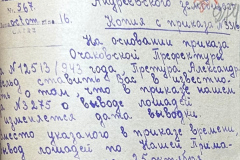 № 567.
16.
Копия с приказа №
На основании приказа
Очаковской Префектуры
№ 12513/943 года, Претура Александр
ставить Вас в известно
о том что в приказе нашем
№ 3275 о выводе лошадей
изменяется дата выводки
вместо указаного в приказе времени
вывод лошадей по Нашей Прима
25